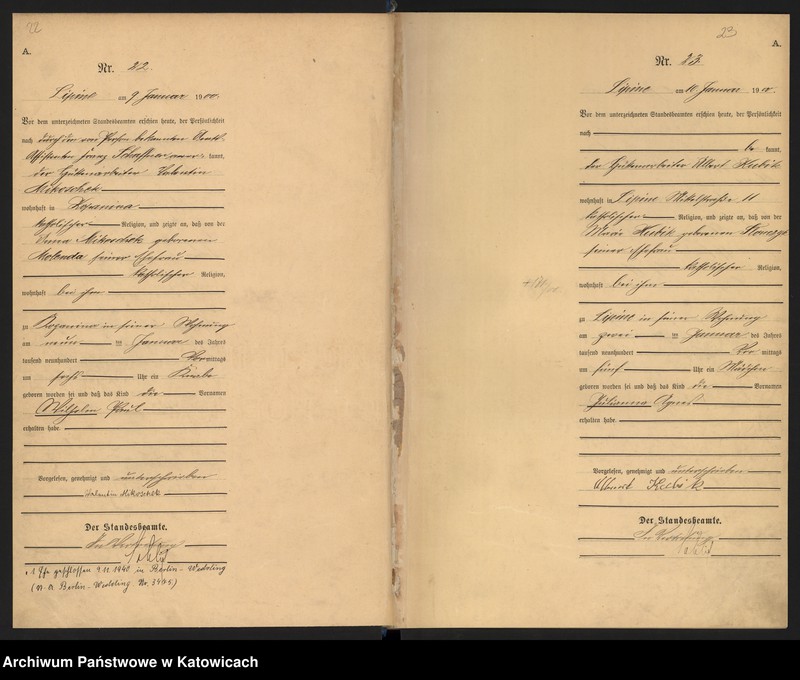 22
A.
Nr. 22.
Lipine am 9 Januar 1900.
Vor dem unterzeichneten Standesbeamten erschien heute, der Persönlichkeit
nach durch den von Person bekannten
Assistenten Franz kannt,
der Hüttenarbeiter Valentin
Mikoschek
wohnhaft in Kopanina
katholischer Religion, und zeigte an, daß von der
Anna Mikoschek geborenen
Molenda seiner Ehefrau
katholischer Religion,
wohnhaft bei ihm
zu Kopanina in seiner Wohnung
am neun ten Januar des Jahres
tausend neunhundert Vormittags
um sechs Uhr ein Knabe
geboren worden sei und daß das Kind die Vornamen
Wilhelm Paul
erhalten habe.
Vorgelesen, genehmigt und unterschrieben
Valentin Mikoschek
Der Standesbeamte.
In Vertretung
1 Ehe geschlossen 9.11.1940 in Berlin - Wedding
(St. A Berlin - Wedding No. 3495)
23
A.
Nr. 23.
Lipine am 10 Januar 1900.
Vor dem unterzeichneten Standesbeamten erschien heute, der Persönlichkeit
nach
be kannt,
der Hüttenarbeiter Albert Kubik
wohnhaft in Lipine 11
katholischer Religion, und zeigte an, daß von der
Marie Kubik geborenen
seiner Ehefrau
katholischer Religion,
wohnhaft bei ihm
zu Lipine in seiner Wohnung
am zwei ten Januar des Jahres
tausend neunhundert Vor mittags
um fünf Uhr ein Mädchen
geboren worden sei und daß das Kind die Vornamen
Julianna Agnes
erhalten habe.
Vorgelesen, genehmigt und unterschrieben
Albert Kubik
Der Standesbeamte.
In Vertretung
Archiwum Państwowe w Katowicach